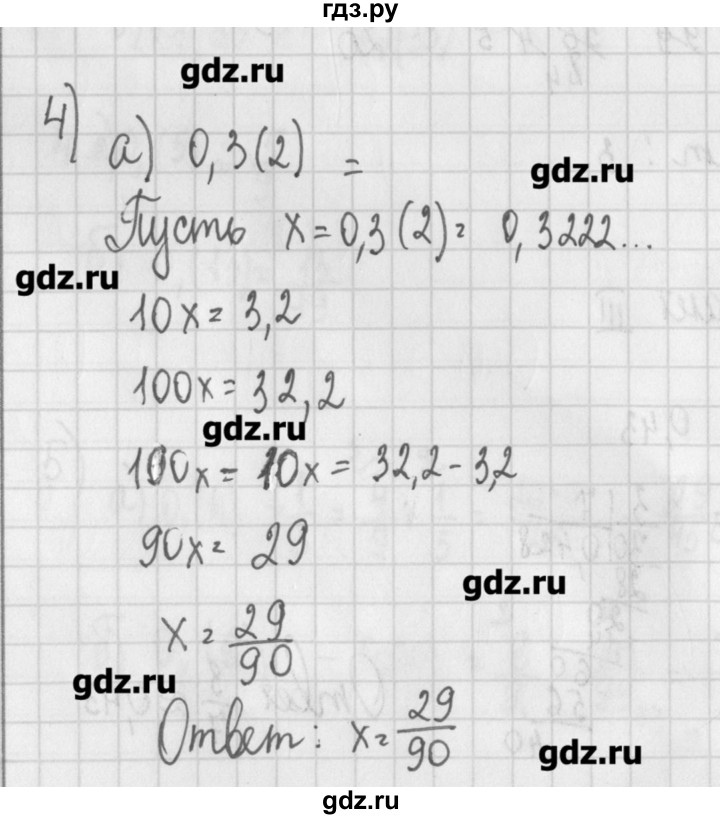 гдз.ру
gdz.ru
4) а) 0,3(2) =
gdz.ru
Пусть x = 0,3(2) = 0,3222...
gdz.ru
10x = 3,2
100x = 32,2
gdz.ru
100x = 10x = 32,2 - 3,2
90x = 29
gdz.ru
x = 29/90
gdz.ru
Ответ: x = 29/90
gdz.ru
gdz.ru